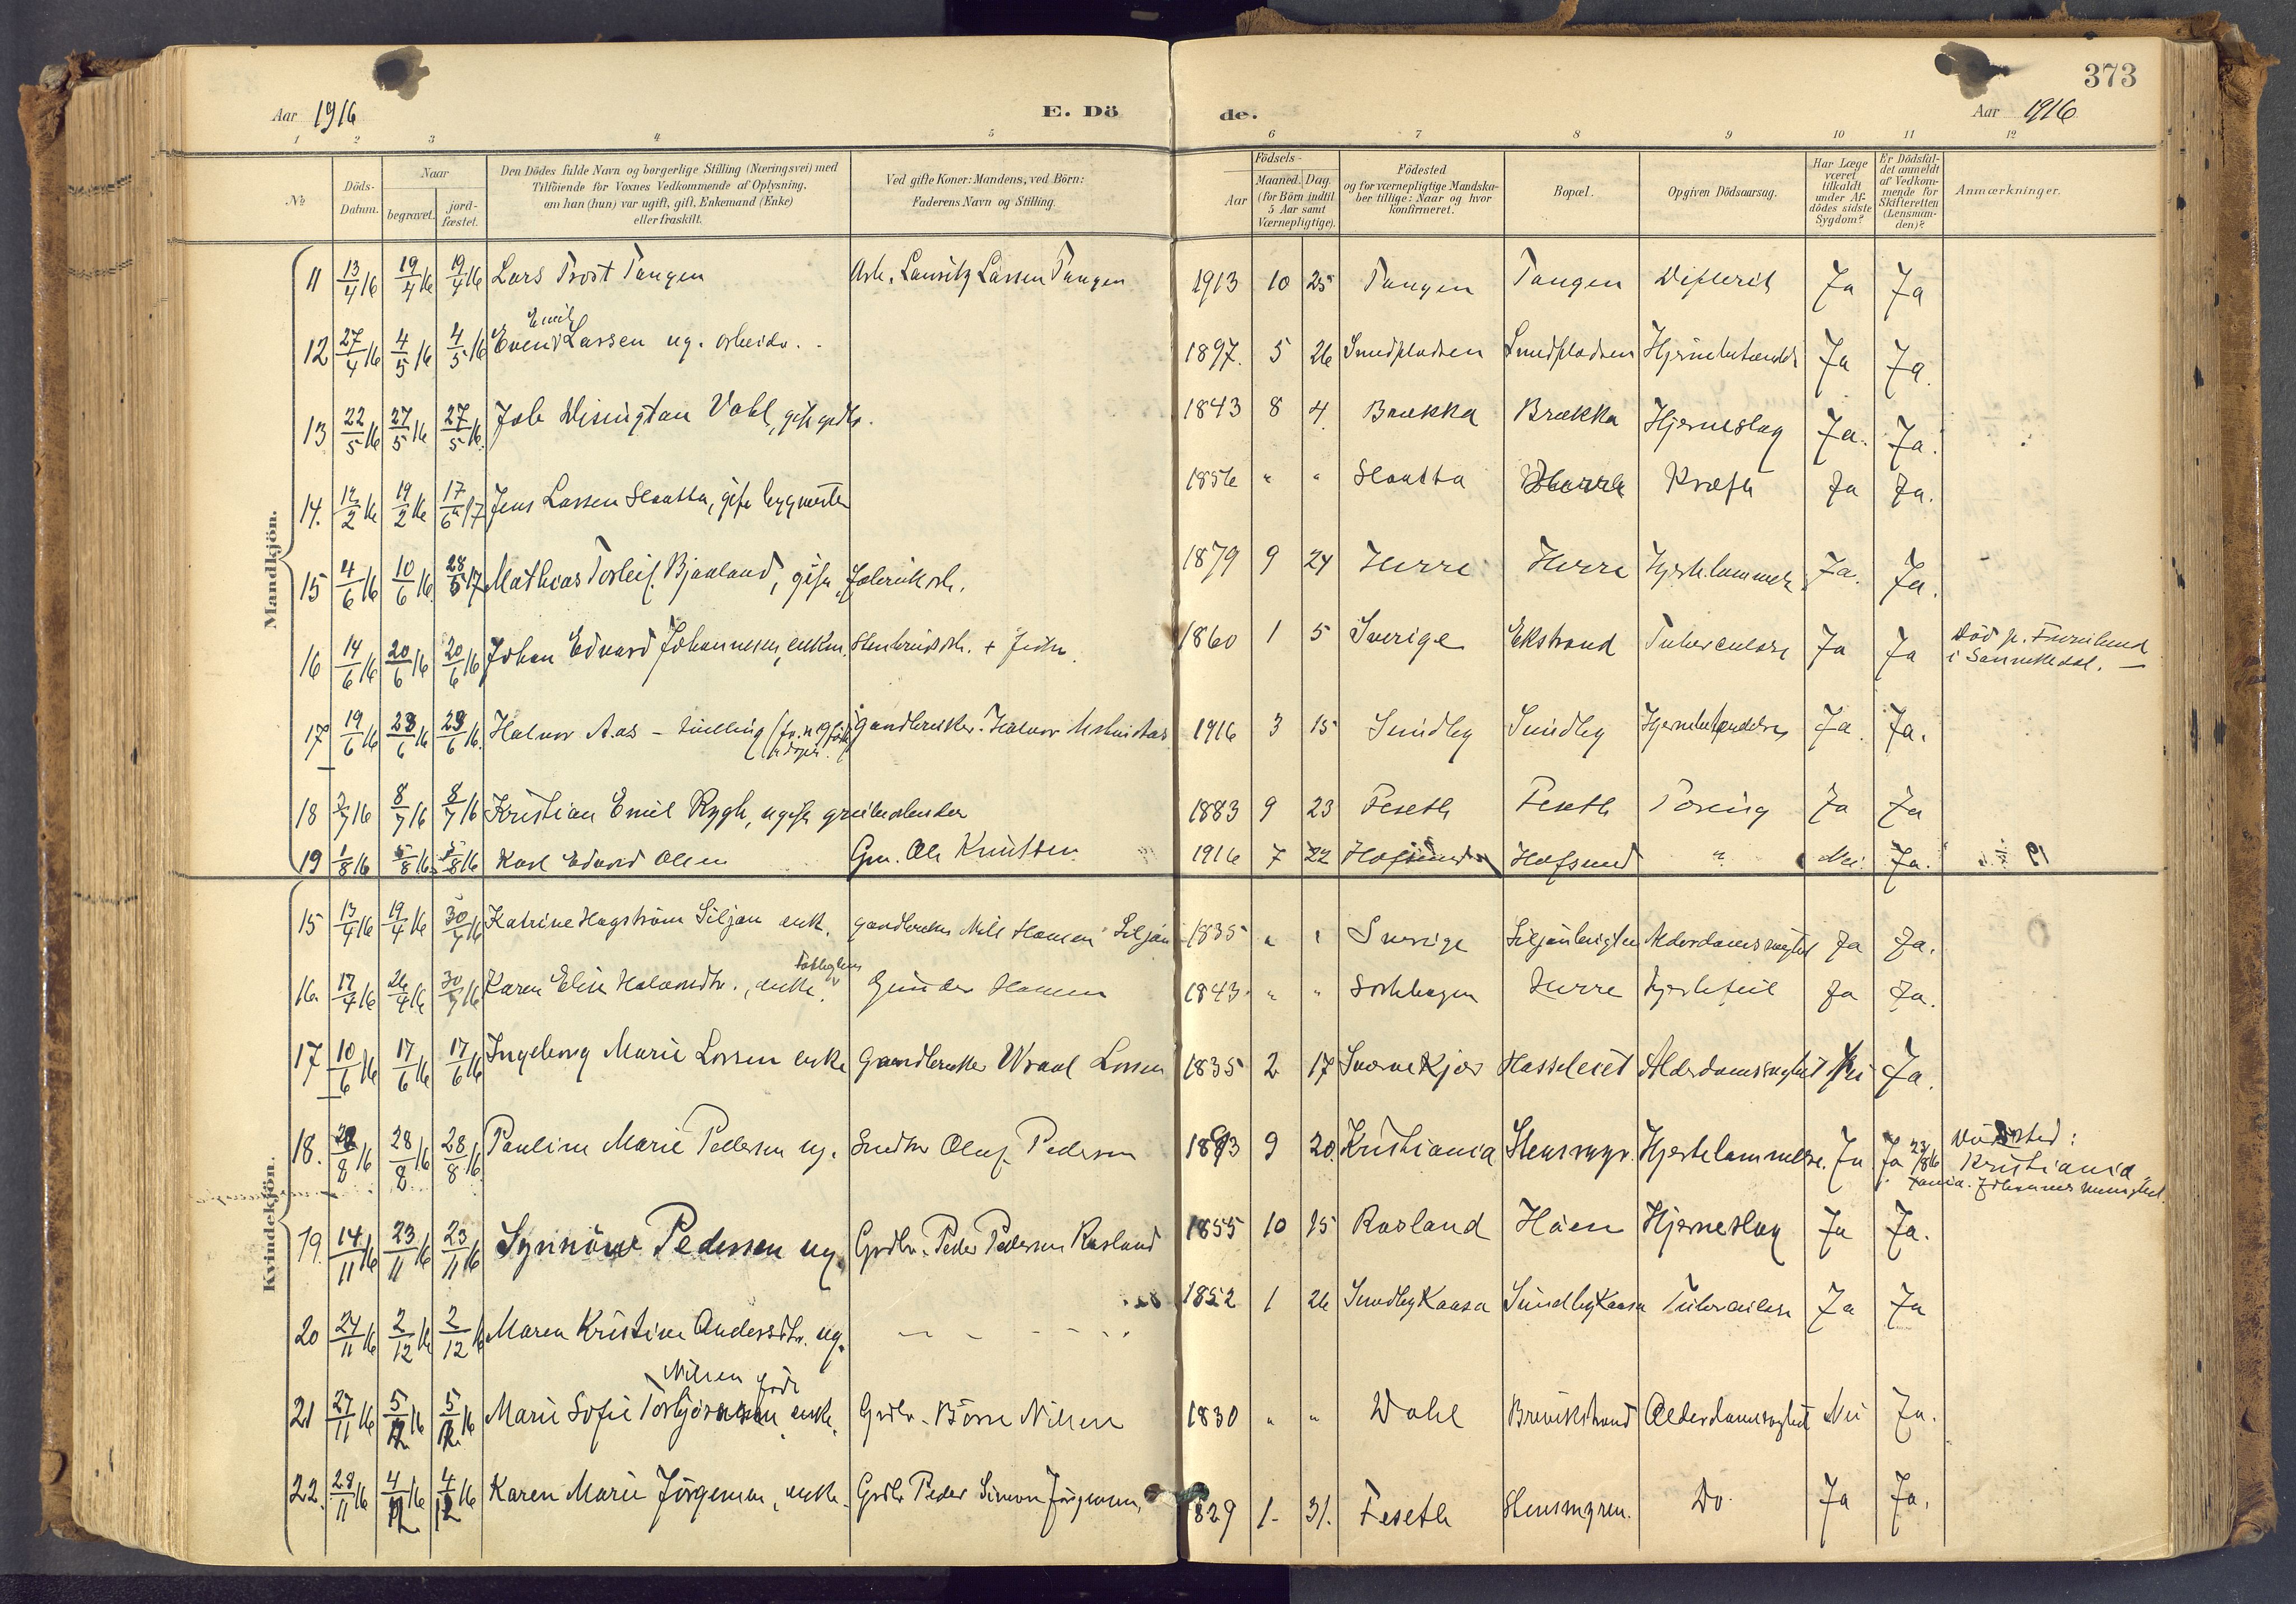 373
Aar 1916 E. Dö de. Aar 1916
1 2 3 4 5 6 7 8 9 10 11 12
No
Döds-Datum.
Naar
begravet.
jord-fæstet.
Den Dödes fulde Navn og borgerlige Stilling (Næringsvei) med
Tilföiende for Voxnes Vedkommende af Oplysning,
om han (hun) var ugift, gift, Enkemand (Enke)
eller fraskilt.
Ved gifte Koner: Mandens, ved Börn:
Faderens Navn og Stilling.
Födsels-
Aar
Maaned. Dag
(for Börn indtil
5 Aar samt
Værnepligtige).
Födested
og for værnepligtige Mandska-
ber tillige: Naar og hvor
konfirmeret.
Bopæl.
Opgiven Dödsaarsag.
Har Læge
været
tilkaldt
under Af-
dödes sidste
Sygdom?
Er Dödsfal-
det anmeldt
af Vedkom-
mende for
Skifteretten
(Lensman-
den)?
Anmærkninger.
Mandkjön.
11 13/4 16 19/4 16 19/4 16 Lars Trost Tangen Arb. Lauritz Larsen Tangen 1913 10 25 Tangen Tangen Difterit Ja Ja
Emil
12 27/4 16 4/5 16 4/5 16 Even Lassen ug. arbeider. 1897. 5 26 Smedpladsen Smedpladsen Ja Ja.
13 22/5 16 27/5 16 27/5 16. Vahl, gift gdbr. 1843 8 4. Brækka Brækka Hjerneslag Ja. Ja.
14. 12/2 16 19/2 16 17/6 17 Jens Larsen gift 1856 " " Herre Kræft Ja Ja.
15 4/6 16 10/6 16. 28/5 17 Mathias Torleif Bjaaland, gift, fabrikarb. 1879 9 24 Herre Herre Hjertelammelse Ja. Ja.
16 14/6 16 20/6 16 20/6 16 Johan Edvard Johannesen, enkm. 1860 1 5 Sverige Ekstrand Tuberculose Ja Ja Död p.
i Sannikedal. —
17 19/6 16 28/6 16 29/6 16. Halvor Aas - tvilling gaardbruker Halvor 1916 3 15 Sundby Sundby Hjernebetændelse Ja. Ja.
18 2/7 16 8/7 16 8/7 16 Kristian Emil Rygh, ugift grubearbeider 1883 9 23 Feseth Feseth Tæring Ja Ja
19 1/8 16 5/8 16 5/8 16 Karl Edvard Olsen Gm. Ole Knutsen 1916 7 22 Hafsund Hafsund " Nei. Ja.
Kvindekjön.
15 13/4 16 19/4 16 30/4 16 Katrine Hagström Siljan enk. gaardbruker Siljan 1835 " " Sverige Alderdomssvaghet Ja Ja.
16. 17/4 16 26/4 16 30/4 16 Karen Elise Halvorsdtr., enke. Gunder Hansen 1843. " " Herre Hjertefeil Ja Ja.
17 10/6 16 17/6 16 17/6 16 Ingeborg Marie Larsen enke Gaardbruker Wraal Larsen 1835 2 17 Alderdomssvaghet Nei Ja.
18. 28/8 16 28/8 16. Pauline Marie Pedersen ug. Smed Oluf Pedersen 1893 9 20. Kristiania Stensmyr. Hjertelammelse. Ja Ja 23/8 16 Dödsted:
Kristiania
Johannes menighet
19. 14/11 16 23/11 16 23/11 16 Synnöve Pedersen ug. Grdbr. Peder Pedersen Rasland 1855 10 15 Rasland Håen Hjerneslag Ja Ja.
20 24/11 16 2/12 16 2/12 16 Maren Kristine Andersdtr. ug. 1852 1 26 Sundby Kaasa Sundby Kaasa Tuberculose Ja Ja
Nilsen född
21 27/11 16 5/12 16 5/12 16 Marie Sofie Torbjörnsen enke. Grdbr. Börre Nilsen 1830 " " Wahl Brevikstrand Alderdomssvaghet Nei Ja.
22. 28/11 16 4/12 16 4/12 16 Karen Marie Jörgensen, enke. Grdbr Peder Simon Jörgensen, 1829 1. 31. Feseth Stensmyren. Do. Ja Ja.